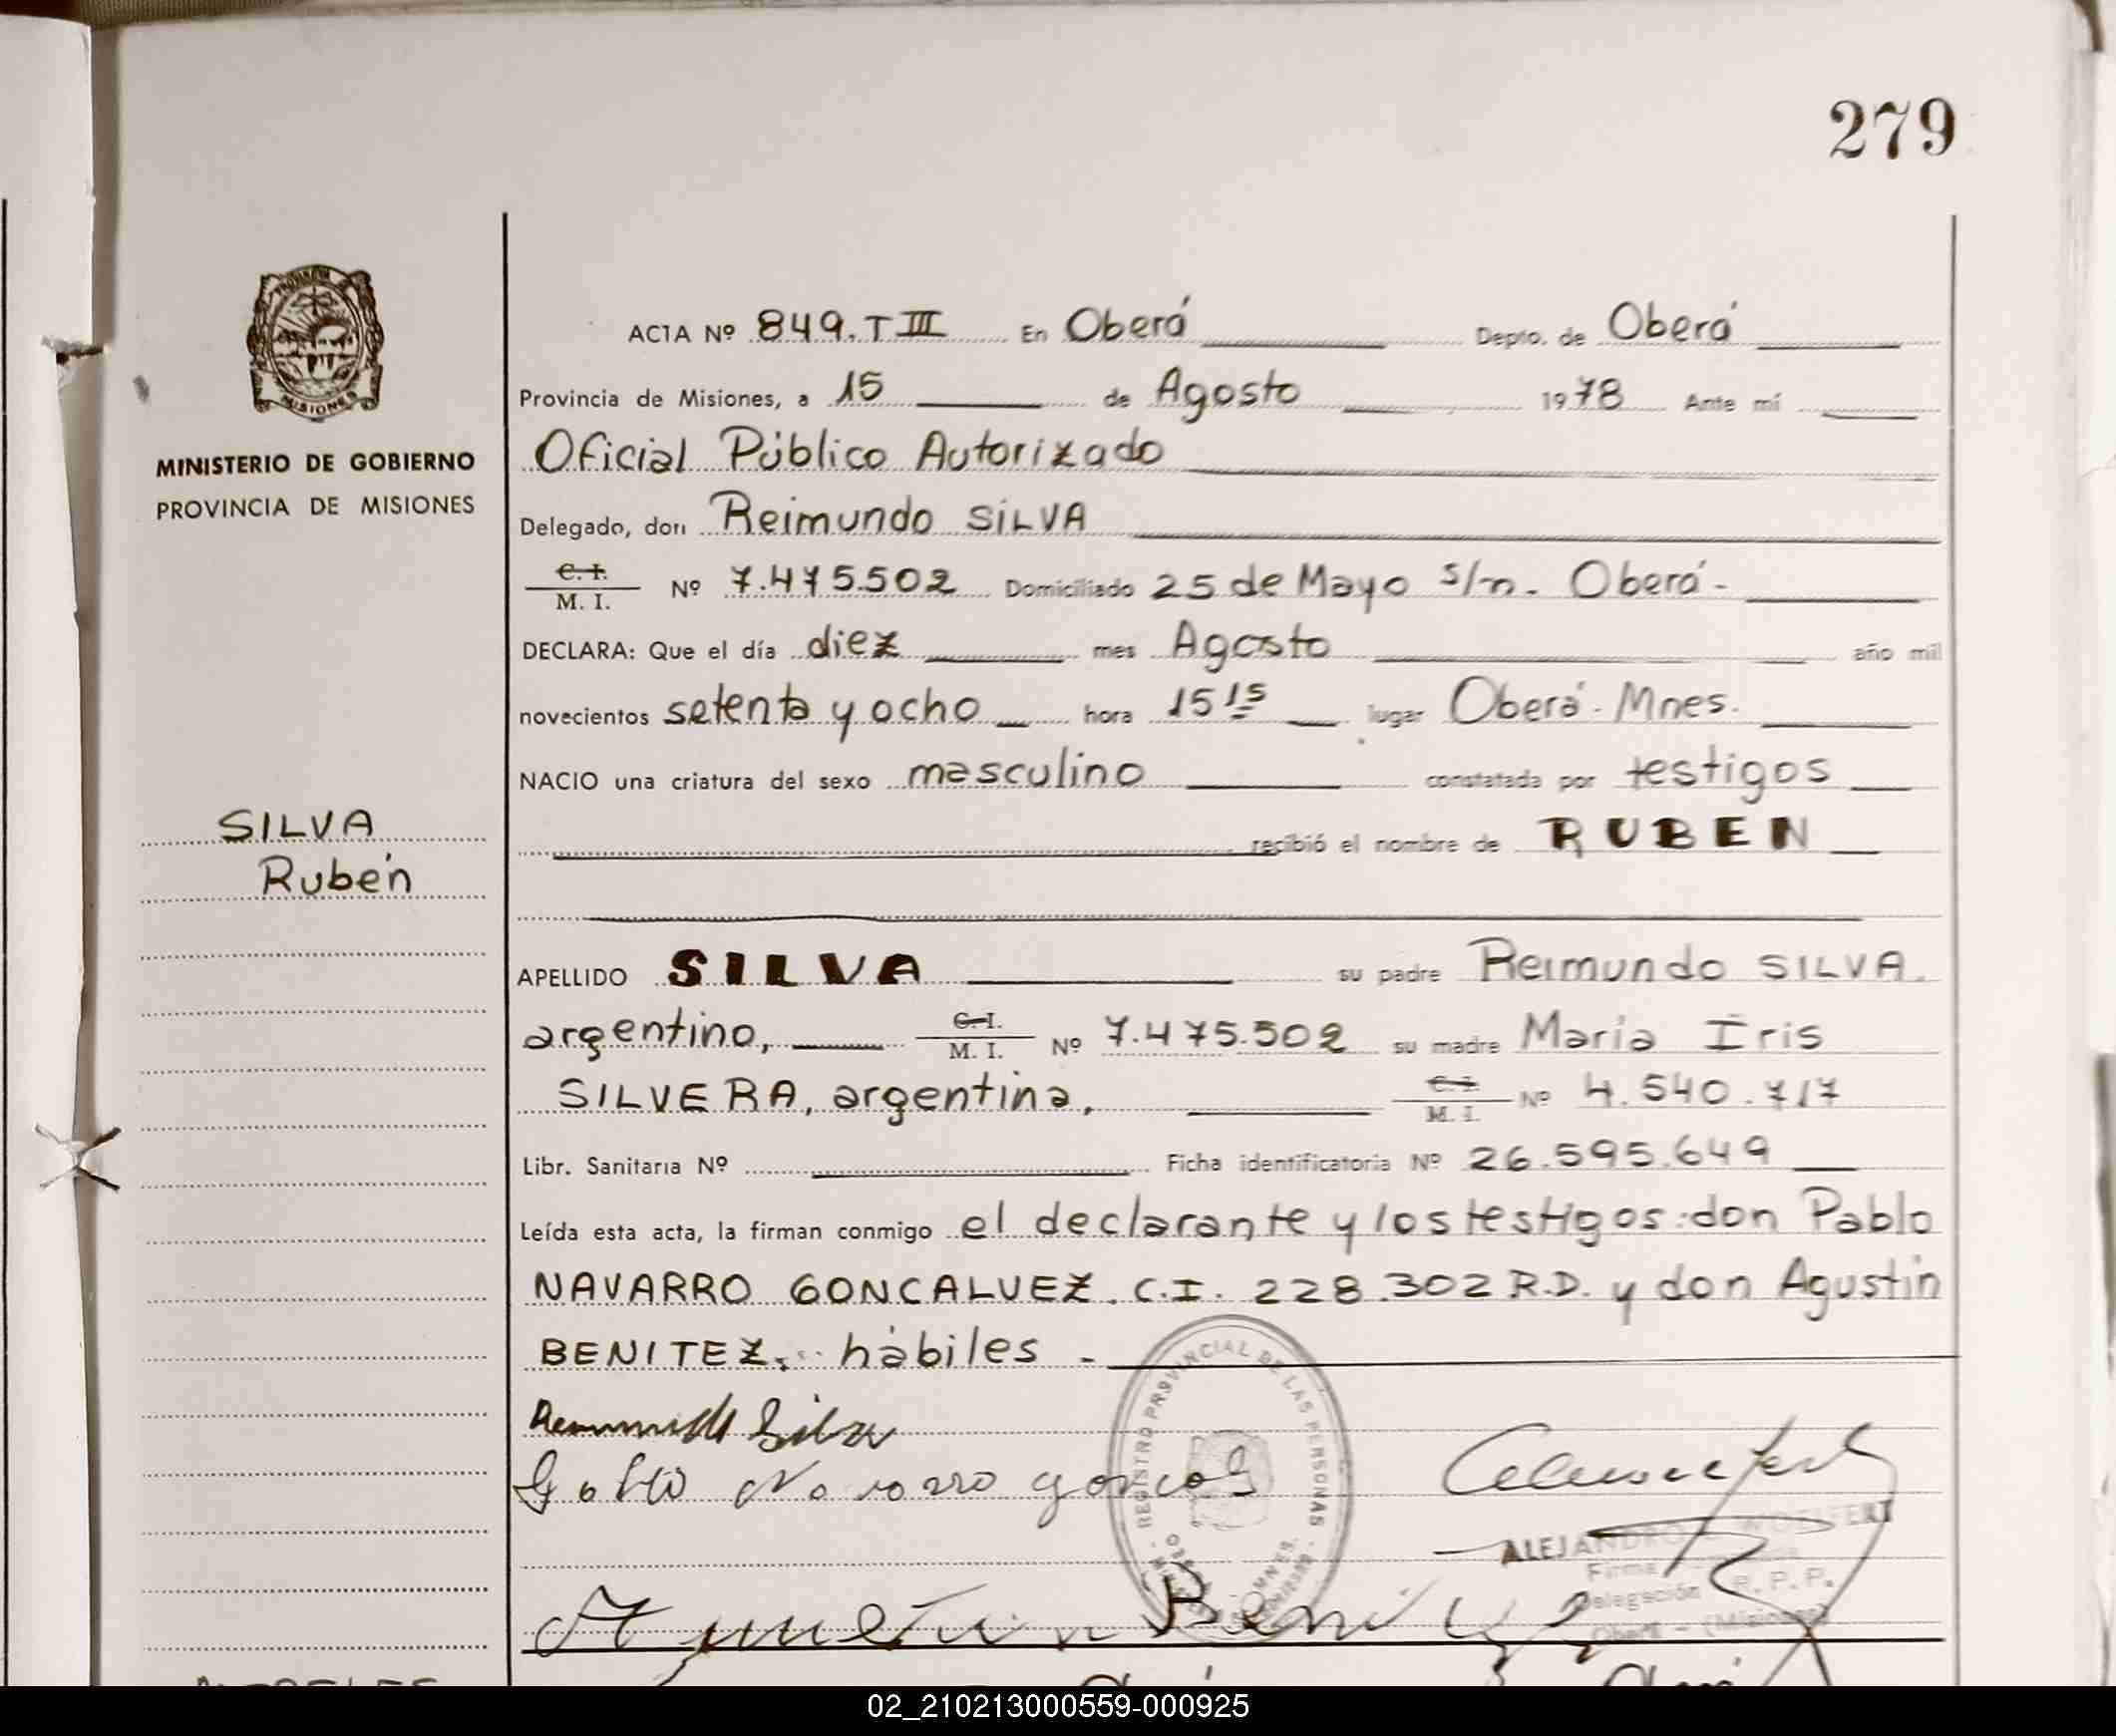 279
PROVINCIA DE
MISIONES
MINISTERIO DE GOBIERNO
PROVINCIA DE MISIONES
SILVA
Rubén
ACTA Nº 849. T III En Oberá Depto. de Oberá
Provincia de Misiones, a 15 de Agosto 1978 Ante mí
Oficial Público Autorizado
Delegado, don Reimundo SILVA
C. I. M. I. Nº 7.475.502 Domiciliado 25 de Mayo s/n. Oberá-
DECLARA: Que el día diez mes Agosto año mil
novecientos setenta y ocho hora 15 15 lugar Oberá. Mnes.
NACIO una criatura del sexo masculino constatada por testigos
recibió el nombre de RUBEN
APELLIDO SILVA su padre Reimundo SILVA.
argentino, C. I. M. I. Nº 7.475.502 su madre María Iris
SILVERA, argentina, C. I. M. I. Nº 4.540.717
Libr. Sanitaria Nº Ficha identificatoria Nº 26.595.649
Leída esta acta, la firman conmigo el declarante y los testigos: don Pablo
NAVARRO GONCALVEZ. C.I. 228.302 R.D. y don Agustín
BENITEZ. hábiles -
REGISTRO PROVINCIAL DE LAS PERSONAS
Silva
Navarro
ALEJANDRO
Firma
Delegación R. P. P.
Oberá - (Misiones)
Benitez
02_210213000559-000925